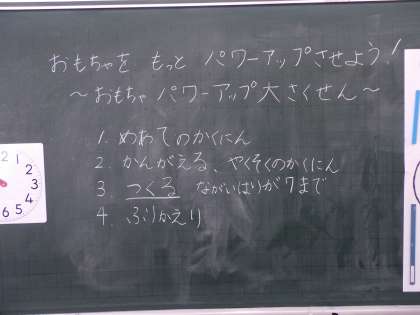 おもちゃを もっと パワーアップさせよう!
~おもちゃ パワーアップ大さくせん~
1. めあてのかくにん
2. かんがえる、やくそくのかくにん
3. つくる ながいはりが7まで
4. ふりかえり
2 1
2
3
4
6 5